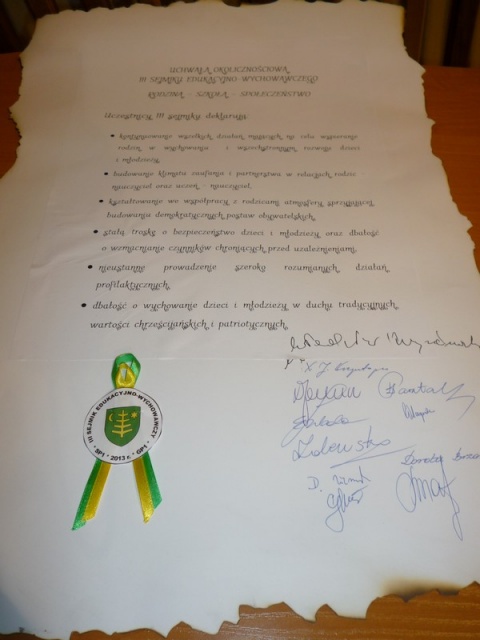 UCHWAŁA OKOLICZNOŚCIOWA
III SEJMIKU EDUKACYJNO-WYCHOWAWCZEGO
RODZINA - SZKOŁA - SPOŁECZEŃSTWO
Uczestnicy III sejmiku deklarują:
• kontynuowanie wszelkich działań mających na celu wspieranie
rodzin w wychowaniu i wszechstronnym rozwoju dzieci
i młodzieży,
• budowanie klimatu zaufania i partnerstwa w relacjach rodzic
nauczyciel oraz uczeń - nauczyciel,
• kształtowanie we współpracy z rodzicami atmosfery sprzyjającej
budowaniu demokratycznych postaw obywatelskich,
• stałą troskę o bezpieczeństwo dzieci i młodzieży oraz dbałość
o wzmacnianie czynników chroniących przed uzależnieniami,
• nieustanne prowadzenie szeroko rozumianych działań
profilaktycznych,
• dbałość o wychowanie dzieci i młodzieży w duchu tradycyjnych
wartości chrześcijańskich i patriotycznych.
III SEJMIK EDUKACYJNO-WYCHOWAWCZY
* SP1 * 2013 r. * GP1 *
Dorota